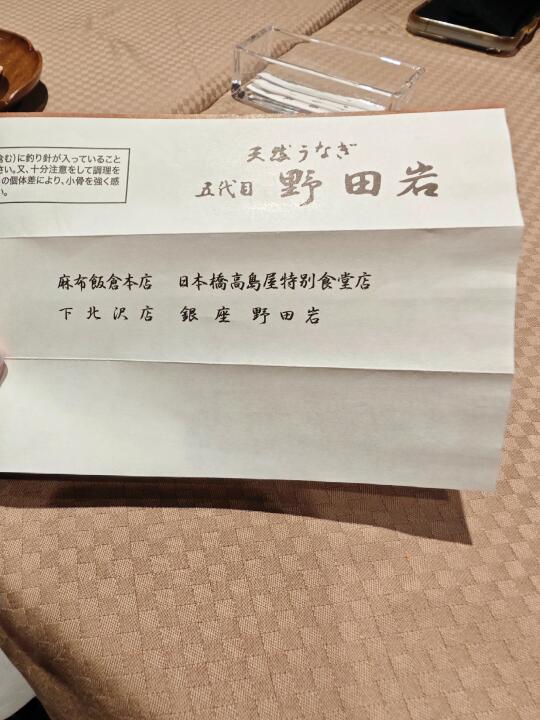 含む)に釣り針が入っていること
さい。又、十分注意をして調理を
の個体差により、小骨を強く感
い。
天然うなぎ
五代目 野田岩
麻布飯倉本店 日本橋高島屋特別食堂店
下北沢店 銀座野田岩